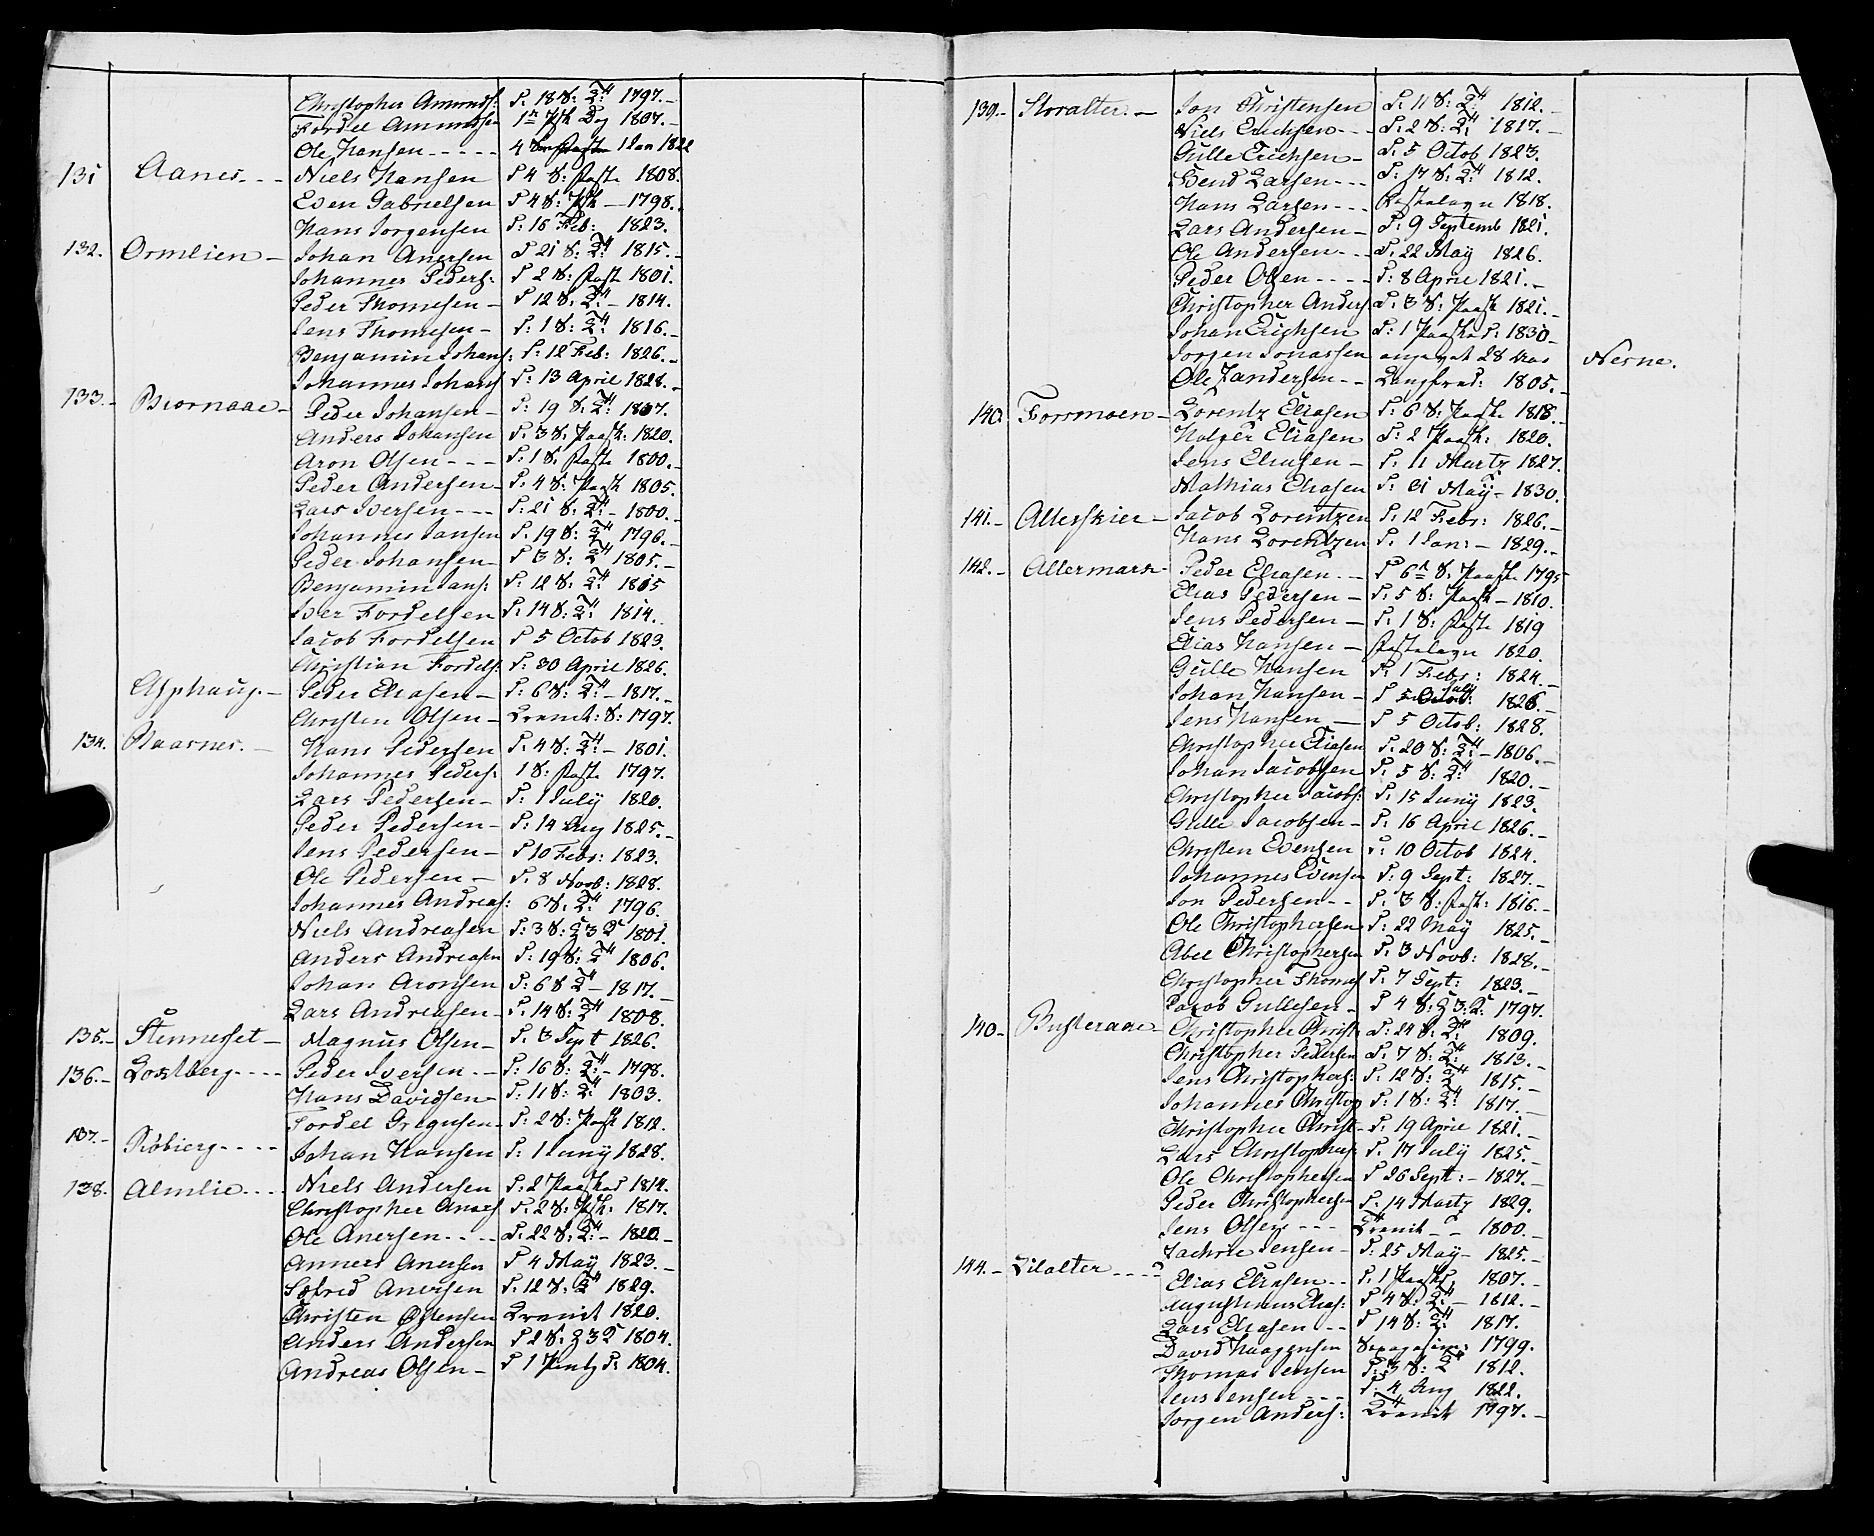 Christopher Amunds: D: 18 S: Tr: 1797.-
Tordel Amundsen 1n Psk Dag 1807.-
Ole Hansen - - - - - 4 Jan 1822
131 Aanes. - - Niels Hansen D 4 S: Paske 1808.
Even Gabrielsen D 4 S: Psk - 1798.
Hans Jorgensen D: 16 Feb: 1823.
132. Ormlien - Johan Anersen D 21 S: Tr: 1815.-
Johannes Peders: D 2 S: Paske 1801.
Peder Thomesen - D 12 S: Tr: - 1814.
Jens Thomesen - D: 1 S: Tr: 1816.-
Benjamin Johans: D: 12 Feb: 1826.-
Johannes Johans D: 13 April 1828.-
133.- Biornaae - Peder Johansen - D: 19 S: Tr: 1807.
Anders Johansen D. 3 S. Paask: 1820.
Aron Olsen - - - D: 1 S. Paske 1800.-
Peder Andersen - D. 4 S: Paask 1805.
Lars Iversen - - - D: 21 S. Tr: - 1800.-
Johannes Jansen D. 19 S: Tr 1796.-
Peder Johansen - D 3 S: Tr 1805.-
Benjamin Jans: D: 12 S: Tr: 1815
Iver Tordelsen D: 14 S: Tr: 1814.
Jacob Tordelsen D 5 Octob 1823.
Christian Tordels: D: 30 April 1826.
Asphaug. - Peder Eliasen - D: 6 S: Tr: - 1817.-
Christen Olsen - 1797.
134. Raasnes. - Hans Pedersen D. 4 S: Tr: - 1801.
Johannes Peders: 1 S: Paske 1797.
Lars Pedersen - D: 1 July 1820.
Peder Pedersen - D: 14 Aug 1825.-
Jens Pedersen - D 10 Febr: 1823.
Ole Pedersen - D. 8 Novb: 1828.
Johannes Andreas: 6 S. Tr: 1796.
Niels Andreasen D: 3 S: 1801.
Anders Andreasen D: 19 S: Tr 1806.
Johan Aronsen D: 6 S Tr - 1817.-
Lars Andreasen - D. 14 S: Tr 1808.
135.- Stennesset - Magnus Olsen - D. 3 Sept 1826.
136.- Peder Iversen. - D: 16 S: Tr: - 1798.
Hans Davidsen - D: 11 S: Tr: 1803.
Tordel Gregusen - D: 2 S: Paask 1812.
137.- Røbierg - - - - Johan Hansen D: 1 Juny 1828.
138. Almlie - - - - Niels Andersen D. 2 Paaskd 1814.
Christopher Aners D. 2 S. Psk: 1817.
Ole Anersen - - - D. 22 S. Tr: - 1820 -
Anners Anersen D 4 May 1823.-
Sefred Anersen D: 12 S: Tr 1829.
Christen Østensen 1820.
Anders Andersen D 2 S. 1804.
Andreas Olsen - D 1 1804.
139.- Storalter. - Jon Christensen D: 11 S: Tr: 1812.-
Niels Erichsen - - - D. 2 S: Tr: 1817.-
Gulle Erichsen - D. 5 Octob 1823.
Bend Larsen - - - D: 17 S: Tr: 1812.
Hans Larsen - - - 1818.
Lars Andersen - D. 9 Septemb 1821.
Ole Andersen - - - D. 22 May 1826.
Peder Olsen - - - - D: 8 April 1821.-
Christopher Anders D. 3 S: Paask 1821.-
Johan Erichsen D: 1 Paaskd: 1830 -
Jorgen Jonassen angivet 28 Aar Nesne.
Ole Zandersen - - Langfred: 1805.-
140. Forsmoen - Lorentz Eliasen D: 6 S. Paask 1818.-
Holger Eliasen D. 2 Paask: 1820.
Jens Eliasen - D. 11 Martz 1827.
Mathias Eliasen D. 31 May - 1830.
141.- Alterskier - Jacob Lorentzen D. 12 Febr: 1826.-
Hans Lorentzen D. 1 Jan: - 1829.-
142.- Altermark - Peder Eliasen. - D 6n S. Paask 1795
Elias Pedersen - D. 5 S: Paask - 1810.
Jens Pedersen - D. 1 S: Paske 1819
Elias Hansen - 1820.
Gulle Hansen D. 1 Febr: 1824.-
Johan Hansen - D 5 July 1826.-
Jens Hansen - D 5 Octob: 1828.
Christopher Eliasen D. 20 S: Tr: - 1806.-
Johan Jacobsen D. 5 S: Tr: 1820.-
Christopher Jacobs: D. 15 Juny 1823.
Gulle Jacobsen - D: 16 April 1826.-
Christen Evensen D: 10 Octob 1824.
Johannes Evensen D: 9 Sept: 1827.-
Jon Pedersen - - D. 3 S: Paske: 1816.-
Ole Christophersen D: 22 May 1825.-
Abel Christophersen D. 3 Novb: 1828.-
Christopher Thomes D. 7 Sept: 1823.-
Jacob Gullesen - D 4 S: 1797.
140 - Busteraae - Christopher Christ D: 24 S: Tr: 1809.
Christopher Pedersen D. 7 S: Tr: 1813.-
Jens Christophers: D: 12 S: Tr 1815.-
Johannes Christop D: 1 S: Tr: 1817.-
Christopher Christ - D. 19 April 1821.-
Lars Christophers D. 17 July 1825.-
Ole Christophersen D 26 Sept: - 1827.-
Peder Christophersen D: 14 Martz 1829.
Jens Olsen - - - - - 1800.-
Zachrie Jensen - D: 25 May - 1825.-
144.- Lilalter - - - - Elias Eliasen - - D. 1 Paaskd. 1807.-
Augustinus Elias: D 4 S: Tr: - 1812.-
Lars Eliasen - - D 14 S: Tr: 1817.
David Haagensen 1799.
Thomas Jensen D: 3 S: Tr 1812.
Jens Jensen - - - D: 4 Aug 1822.
Jorgen Anders: 1797.-